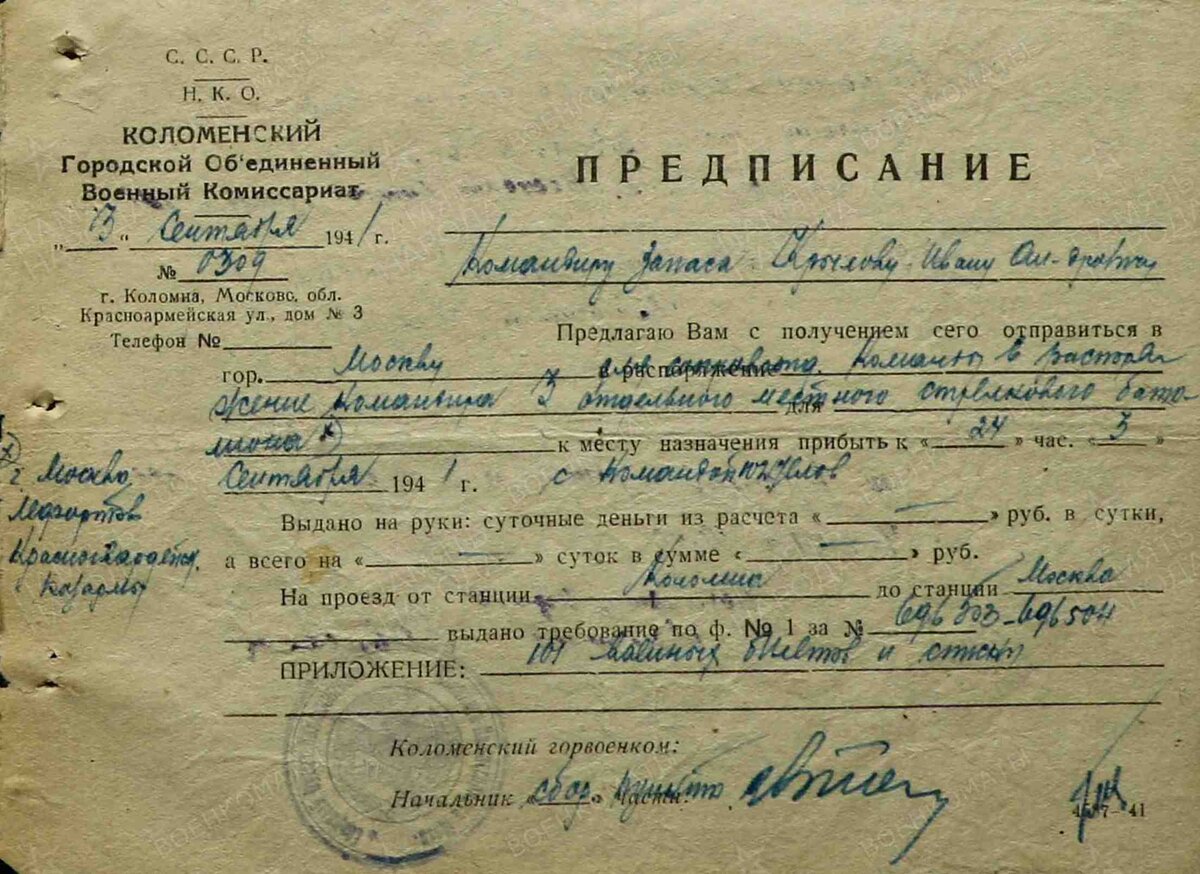 С. С. С. Р.
Н. К. О.
КОЛОМЕНСКИЙ
Городской Об'единенный
Военный Комиссариат
„3“ Сентября 1941 г.
№ 0309
г. Коломна, Московс. обл.
Красноармейская ул., дом № 3
Телефон №
ПРЕДПИСАНИЕ
Командиру запаса Крылову Ивану Ал-дровичу
Предлагаю Вам с получением сего отправиться в
гор. Москву в распоряжение для команды в распоря
жение Командира 3 отдельного местного стрелкового бата
для
лиона х) к месту назначения прибыть к «24» час. «3»
Сентября 1941 г. с Командой
х)
г. Москва
Лефортов
Красногвардейск.
Казармы
Выдано на руки: суточные деньги из расчета « — » руб. в сутки,
а всего на « — » суток в сумме « — » руб.
На проезд от станции Коломна до станции Москва
выдано требование по ф. № 1 за № 696503-696504
ПРИЛОЖЕНИЕ: 101 военных билетов и
Коломенский горвоенком:
Начальник «сбор. пункта» части:
41